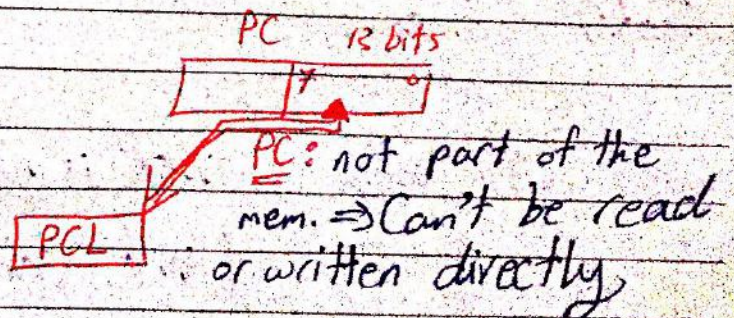 PC 13 bits
7 0
PC: not part of the
mem. ⇒ Can't be read
PCL
or written directly,